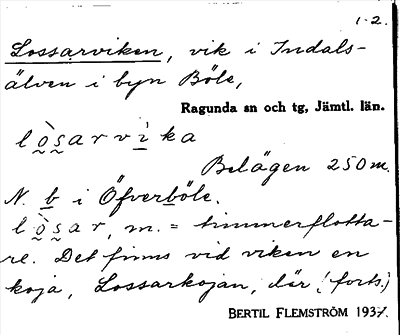 1-2.
Lossarviken, vik i Indals-
älven i byn Böle,
Ragunda sn och tg, Jämtl. län.
lò̰s̰arvi̠ka
Belägen 250 m.
N. b i Öfverböle.
lò̰s̰ar, m. = timmerflotta-
re. Det finns vid viken en
koja, Lossarkojan, där (forts.)
BERTIL FLEMSTRÖM 1937.